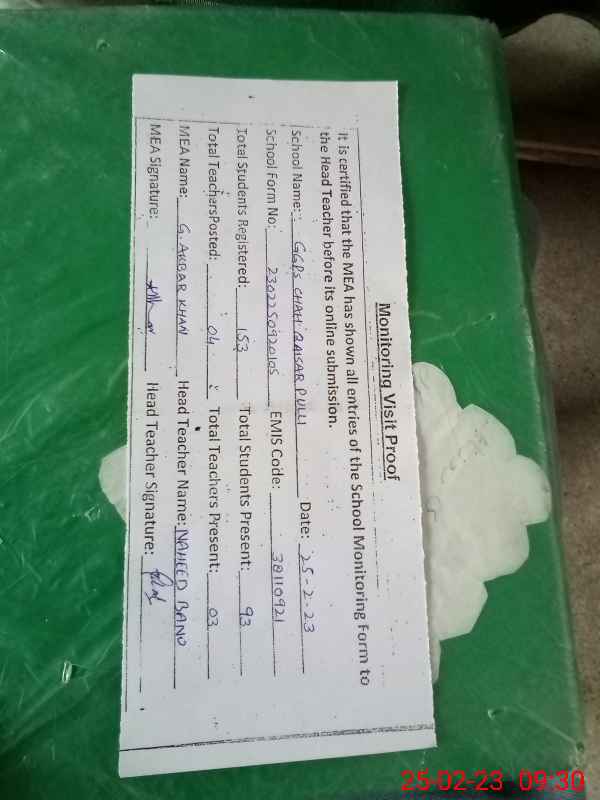 Monitoring Visit Proof
It is certified that the MEA has shown all entries of the School Monitoring Form to
the Head Teacher before its online submission.
School Name: GGPS CHAH QAISAR PULLI Date: 25-2-23
School Form No: 230225092010S EMIS Code: 38110921
Total Students Registered: 153 Total Students Present: 93
Total TeachersPosted: 04 Total Teachers Present: 03
MEA Name: G. AKBAR KHAN Head Teacher Name: NAHEED BANO
MEA Signature: Head Teacher Signature:
25-02-23 09:30